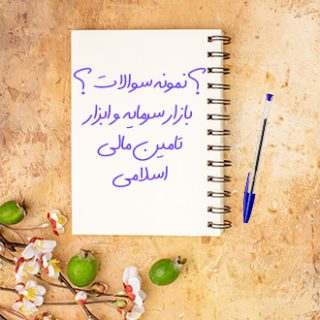 ؟ نمونه سوالات ؟
بازار سرمایه و ابزار
تامین مالی
اسلامی